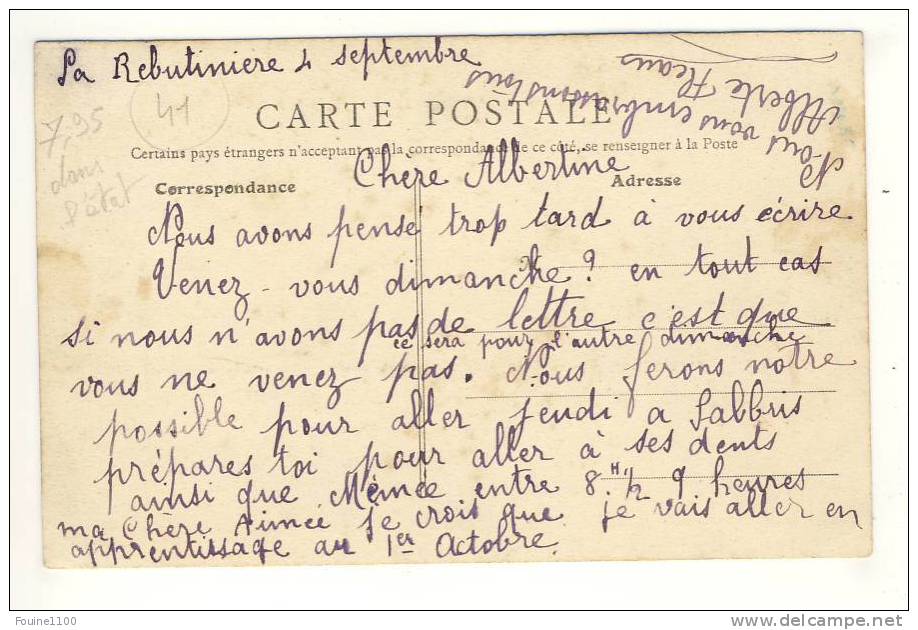 La Rebutinière 4 septembre
41
7,95
dans
l'état
CARTE POSTALE
Certains pays étrangers n'acceptant pas la correspondance de ce côté, se renseigner à la Poste
Correspondance
Adresse
Chère Albertine
Nous avons pense trop tard à vous ecrire
Venez-vous dimanche? en tout cas
si nous n'avons pas de lettre c'est que
ce sera pour l'autre dimanche
vous ne venez pas. Nous ferons notre
possible pour aller jeudi a Salbris
prépares toi pour aller à ses dents
ainsi que Mémée entre 8 H 1/2 9 heures
ma Chere Aimée je crois que je vais aller en
apprentissage au 1er Octobre.
Nous vous embrassons tous
Alberte
Foune1100
www.delcampe.net